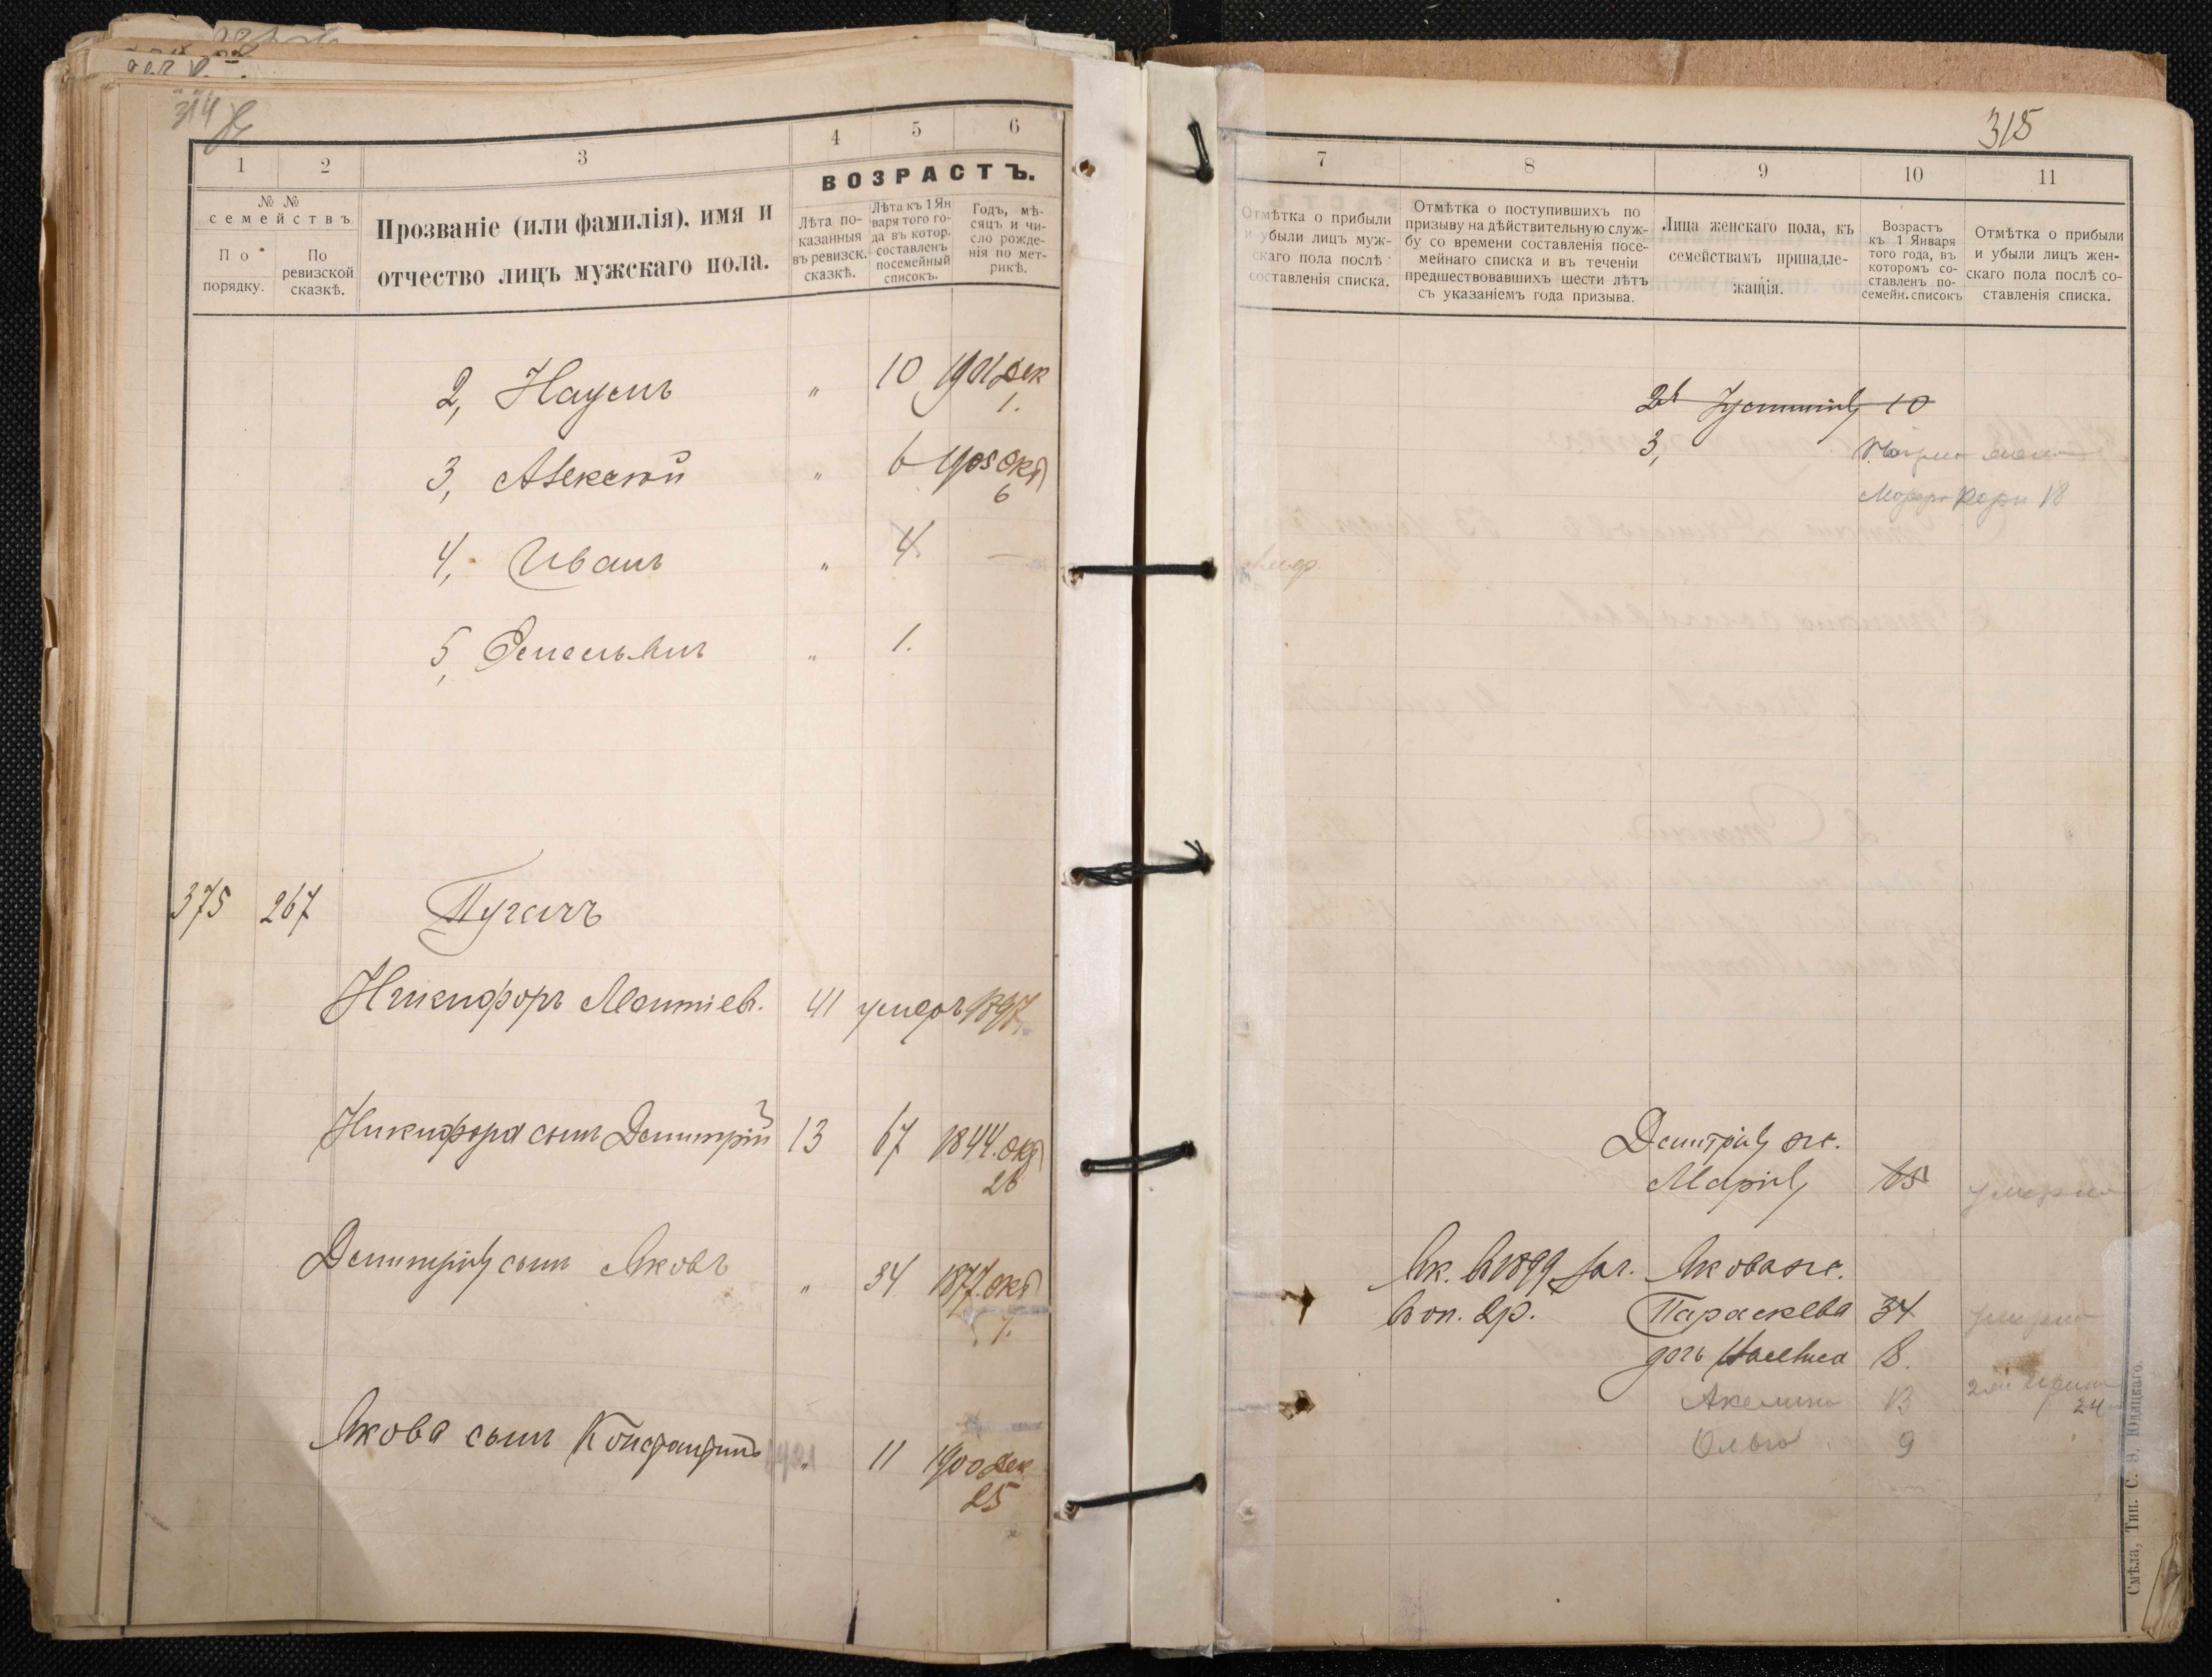 314
1 2 3 4 5 6
№ №
семействъ
По
порядку.
По
ревизской
сказкѣ.
Прозваніе (или фамилія), имя и
отчество лицъ мужскаго пола.
ВОЗРАСТЪ.
Лѣта по-
казанныя
въ ревизск.
сказкѣ.
Лѣта къ 1 Ян
варя того го-
да въ котор.
составленъ
посемейный
списокъ.
Годъ, мѣ-
сяцъ и чи-
сло рожде-
нія по мет-
рикѣ.
2, Наумъ " 10 1901 дек
1.
3, Алексѣй " 6 1905 окт
6
4, Иванъ " 4 —
5, Емельянъ " 1.
375 267 Пугачъ
Никифоръ Леонтіев. 41 умеръ 1897.
Никифора сынъ Димитрій 13 67 1844. окт
26
Димитрія сынъ Яковъ " 34 1877. окт
7.
Якова сынъ Константинъ " 11 1900 дек
25
315
7 8 9 10 11
Отмѣтка о прибыли
и убыли лицъ муж-
скаго пола послѣ
составленія списка.
Отмѣтка о поступившихъ по
призыву на дѣйствительную служ-
бу со времени составленія посе-
мейнаго списка и въ теченіи
предшествовавшихъ шести лѣтъ
съ указаніемъ года призыва.
Лица женскаго пола, къ
семействамъ принадле-
жащія.
Возрастъ
къ 1 Января
того года, въ
которомъ со-
ставленъ по-
семейн. списокъ
Отмѣтка о прибыли
и убыли лицъ жен-
скаго пола послѣ со-
ставленія списка.
2я Іустинія 10
3,
18
Димитрія ж.
Марія 65 умерла
Як. в 1899 зач. Якова ж.
в оп. др. Параскева 34 умерла
дочь 8.
Акелина 13 24
Ольга 9
Смѣла, Тип. С. Э. Юдицкаго.